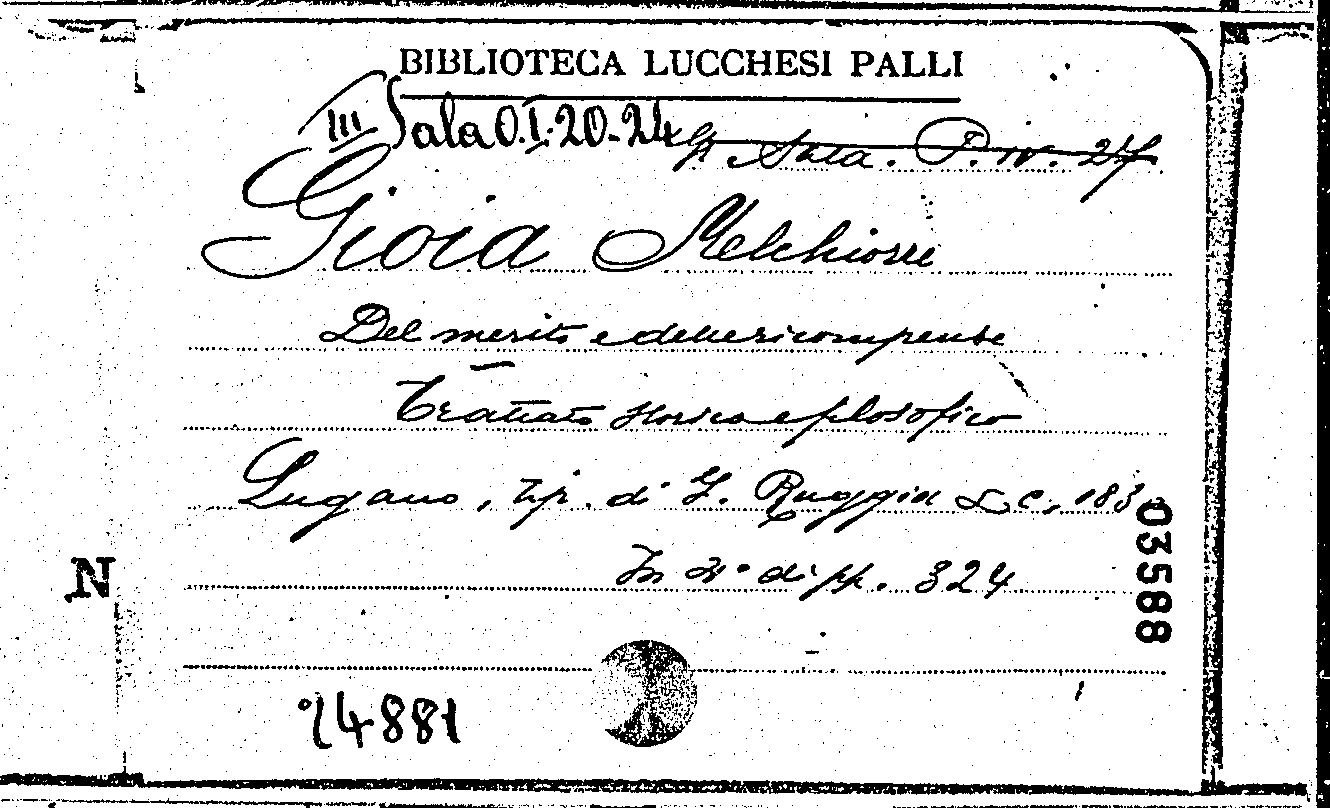 BIBLIOTECA LUCCHESI PALLI
III Sala O.I.20-24 Sala. P. IV. 27
Gioia Melchiorre
Del merito e delle ricompense
Trattato storico e filosofico
Lugano, tip. di G. Ruggia & C., 1830
In 4° di pp. 324
N
03588
24881